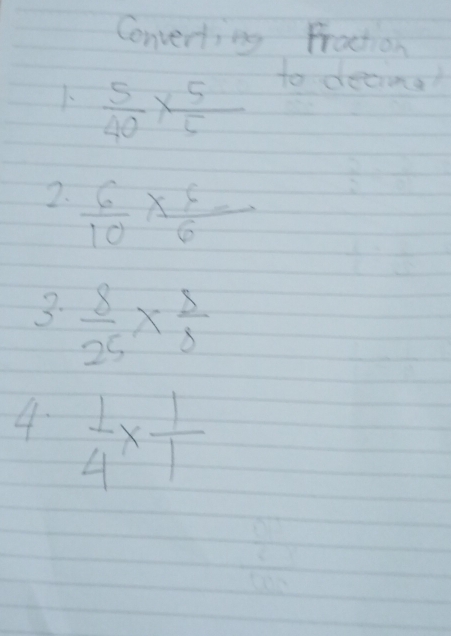 Converting Fraction
to decimal
1. 5/40 × 5/5
2. 6/10 × 6/6
3. 8/25 × 8/8
4. 1/4 × 1/1